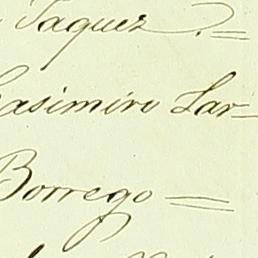 Jaquez . =
Casimiro Lar-
Borrego =